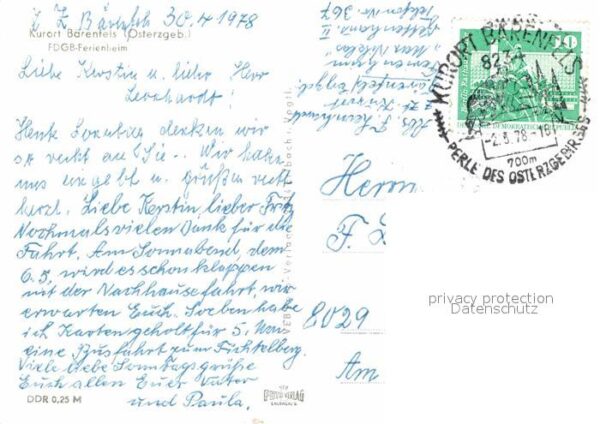 z Z Bärenfels 30.4 1978
Kurort Bärenfels (Osterzgeb.)
FDGB-Ferienheim
Liebe Kerstin u. lieber Herr
Leonhardt!
Heute Sonntag denken wir
so recht an Sie.. Wir haben
uns eingelebt u. grüßen recht
herzl. Liebe Kerstin, lieber Fritz
Nochmals vielen Dank für die
Fahrt. Am Sonnabend, dem
6.5, wird es schon klappen
mit der Nachhausefahrt, wir
erwarten Euch. Soeben habe
ich Karten geholt für 5. Mai
eine Busfahrt zum Fichtelberg.
Viele liebe Sonntagsgrüße
Euch allen Euer Vater
und Paula.
DDR 0,25 M
Abs. F. Leonhard
z. Zt. Kurort
Bärenfels Erzgeb.
Ferienheim
Telefon Nr 367
KURORT BÄRENFELS
8234
-2.5.78-18
700m
PERLE DES OSTERZGEBIRGES
10
DEMOKRATISCHE REPUBLIK
Herrn
F. L
8029
Am
VEB
Verlag
PHOTO VERLAG
privacy protection
Datenschutz